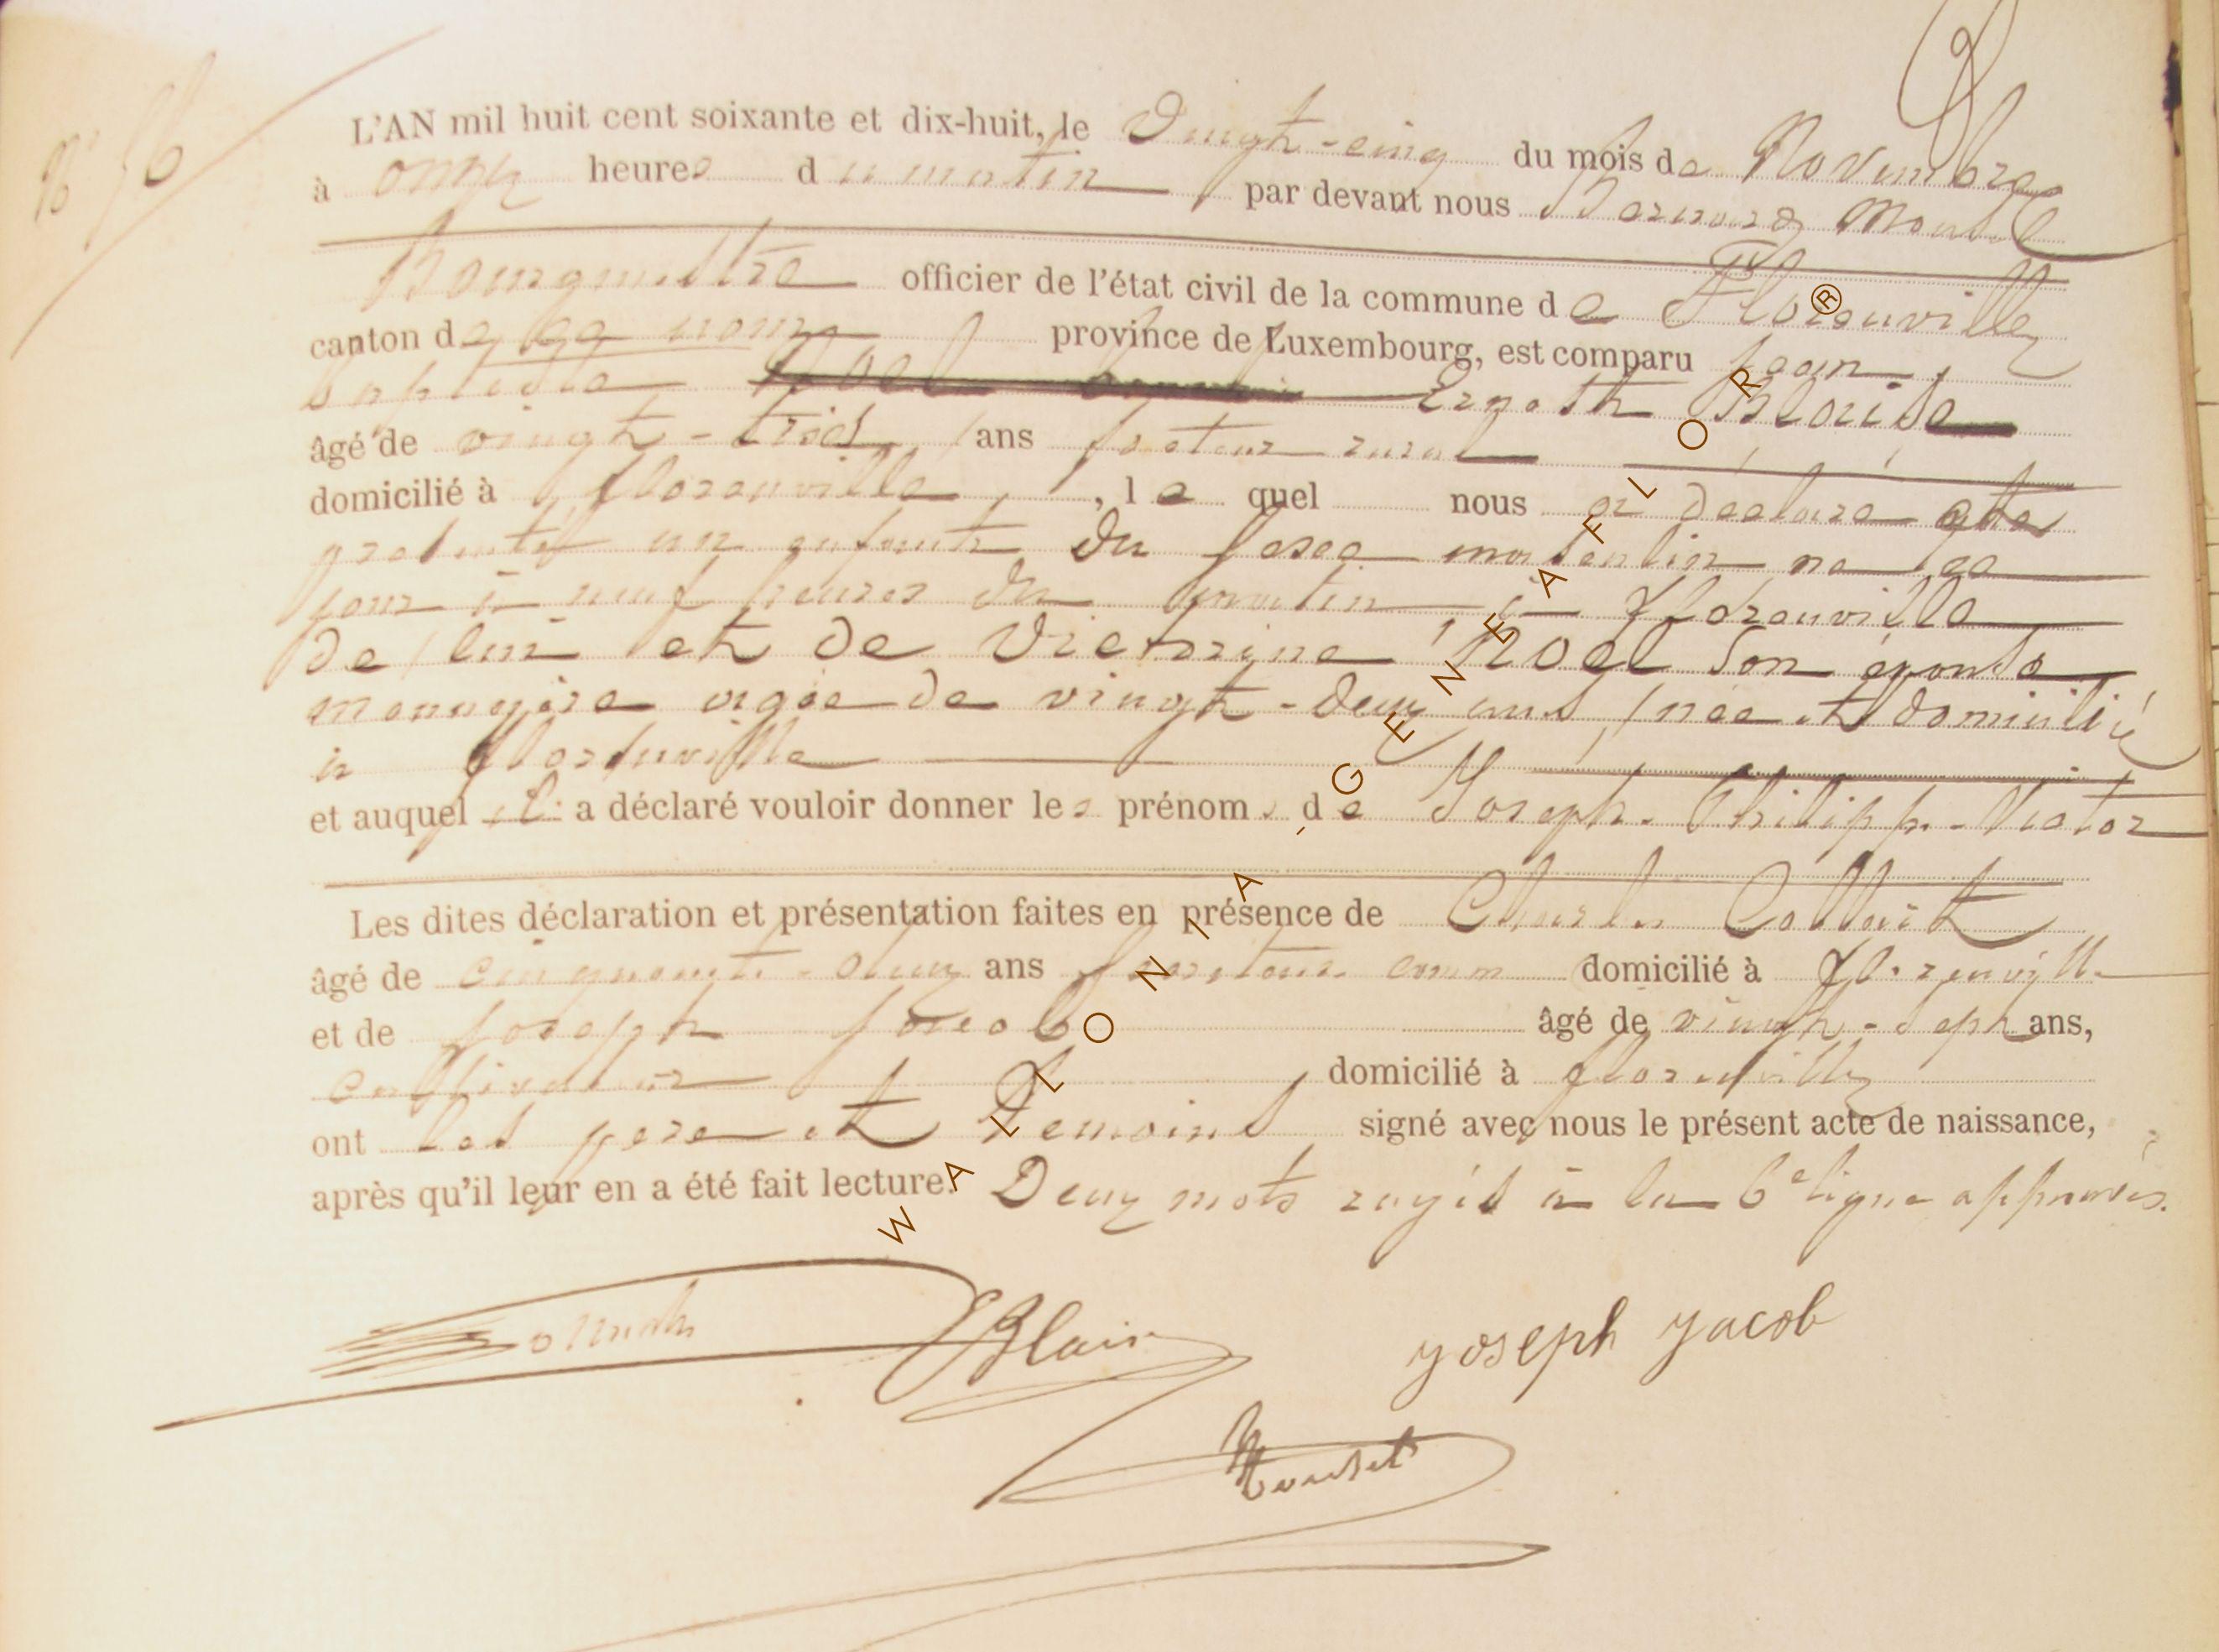 N° 56
L'AN mil huit cent soixante et dix-huit, le Vingt-cinq du mois de Novembre
à onze heures du matin par devant nous Bernard
Bourgmestre officier de l'état civil de la commune de Florenville
canton de ce nom province de Luxembourg, est comparu Jean
Baptiste Noel Ernest Blaise
âgé de vingt-trois ans facteur rural
domicilié à florenville, lequel nous a déclaré et a
présenté un enfant du sexe masculin né ce
jour à neuf heures du matin à Florenville
de lui et de Victorine Noël son épouse
menagère agée de vingt-deux ans, née et domicilié
à florenville
et auquel il a déclaré vouloir donner les prénoms de Joseph-Philippe-Victor
Les dites déclaration et présentation faites en présence de Charles
âgé de cinquante-deux ans domicilié à Florenville
et de Joseph Jacob âgé de vingt-sept ans,
cultivateur domicilié à florenville
ont les père et temoins signé avec nous le présent acte de naissance,
après qu'il leur en a été fait lecture. Deux mots rayés à la 6e ligne approuvés.
EBlaise
Joseph Jacob
WALLONIA, GENEAFLOR®